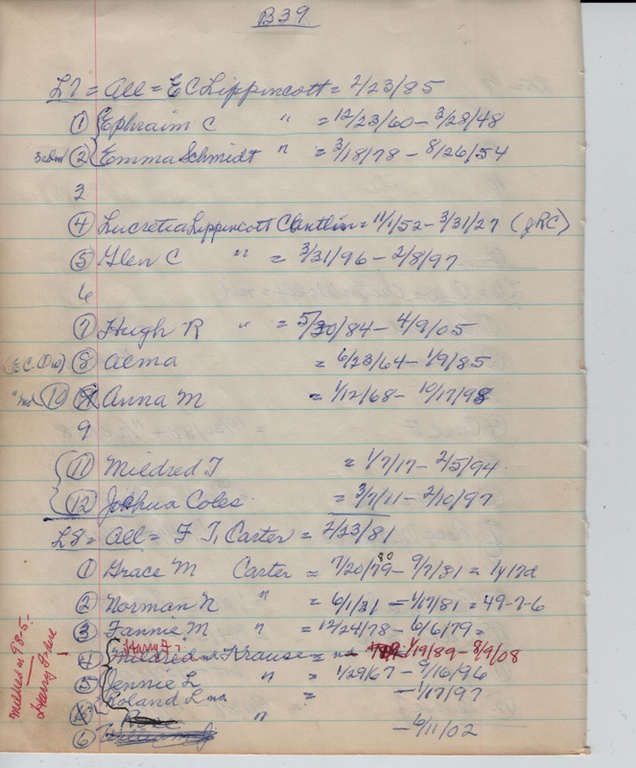 B39
L7 = All = E C Lippincott = 2/23/85
① Ephraim C " = 12/23/60 - 3/28/48
② Emma Schmidt " = 3/18/78 - 8/26/54
3
④ Lucretia Lippincott = 11/1/52 - 3/31/27 (JRC)
⑤ Glen C " = 3/31/96 - 2/8/97
6
⑦ Hugh R " = 5/30/84 - 4/9/05
(E.C. ) ⑧ Alma = 6/23/64 - 1/9/85
⑩ Anna M = 1/12/68 - 10/17/98
9
⑪ Mildred T = 1/7/17 - 2/5/94
⑫ Joshua Coles = 3/7/11 - 2/10/97
L8 = All = F T. Carter = 2/23/81
① Grace M Carter = 7/20/79 80 - 9/7/81 = 1y17d
② Norman N " = 6/1/31 - 1/17/81 = 49-7-6
③ Fannie M " = 12/24/78 - 6/6/79 =
Harry F.
④ Mildred Krause = 1/19/89 - 8/9/08
⑤ Jennie L " = 1/29/67 - 9/16/96
Roland L = - 1/17/97
"
⑥ William - 6/11/02
Mildred in 98-5-
Harry F. here